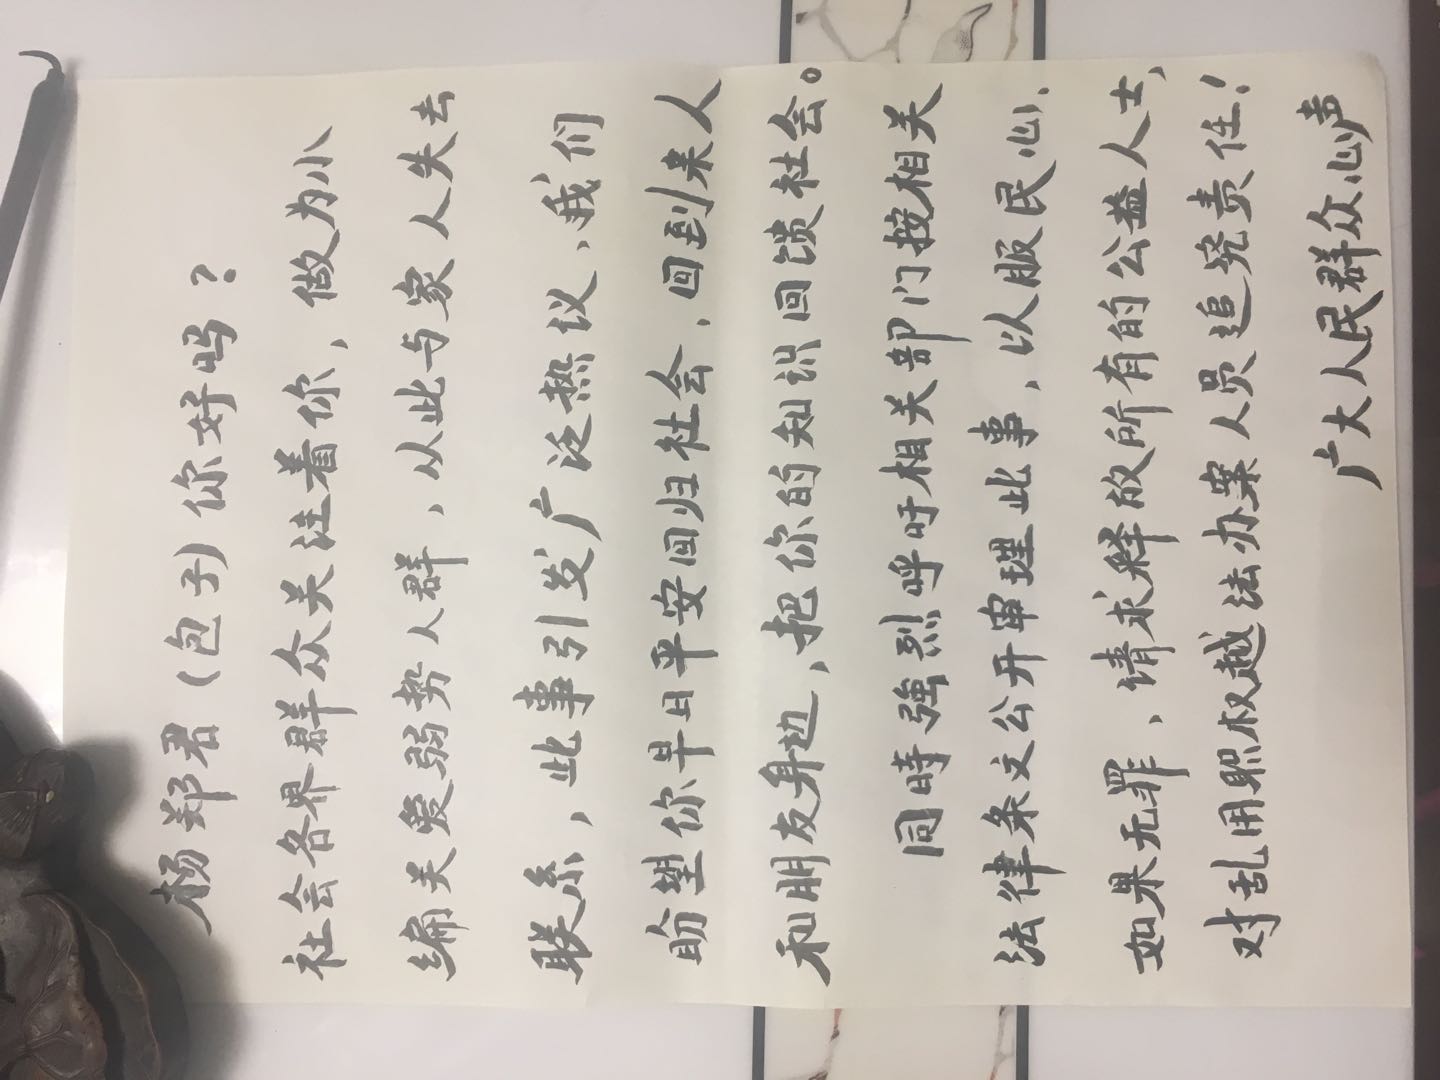 杨郑君（包子）你好吗？
社会各界群众关注着你，做为小
编关爱弱势人群，从此与家人失去
联系，此事引发广泛热议，我们
盼望你早日平安回归社会，回到亲人
和朋友身边，把你的知识回馈社会。
同時強烈呼吁相关部门按相关
法律条文公开审理此事，以服民心、
如果无罪，请求释放所有的公益人士，
对乱用职权越法办案人员追究责任！
广大人民群众心声